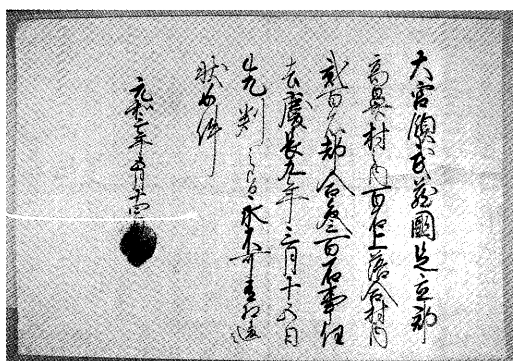 大宮領武蔵國足立郡
高鼻村内百石上落合村内
貳百石都合叁百石事任
去慶長九年三月十五日
先判之旨永不可有相違
状如件
元和 年 月十四